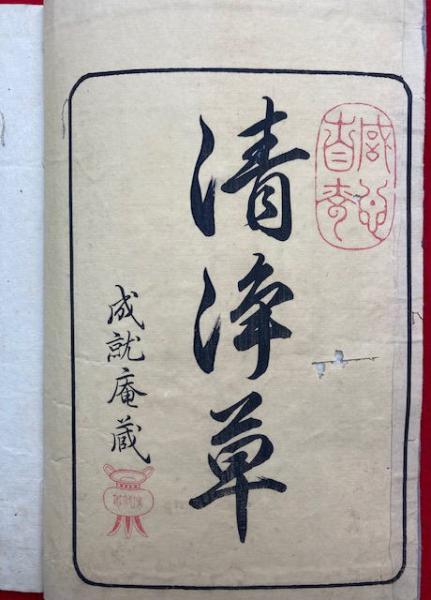 清浄草
成就庵蔵